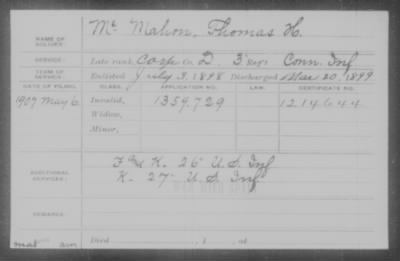 NAME OF SOLDIER: Mc Mahon, Thomas H.
SERVICE: Late rank, Corp Co. D, 3" Reg't Conn. Inf
TERM OF SERVICE: Enlisted July 5, 1898 Discharged Mar 20, 1899
DATE OF FILING. CLASS. APPLICATION NO. LAW. CERTIFICATE NO.
1907 May 6 Invalid, 1359,729 1214644
Widow,
Minor,
ADDITIONAL SERVICES: F and K. 26" U.S. Inf
K. 27" U.S. Inf
REMARKS:
Died , 1 , at